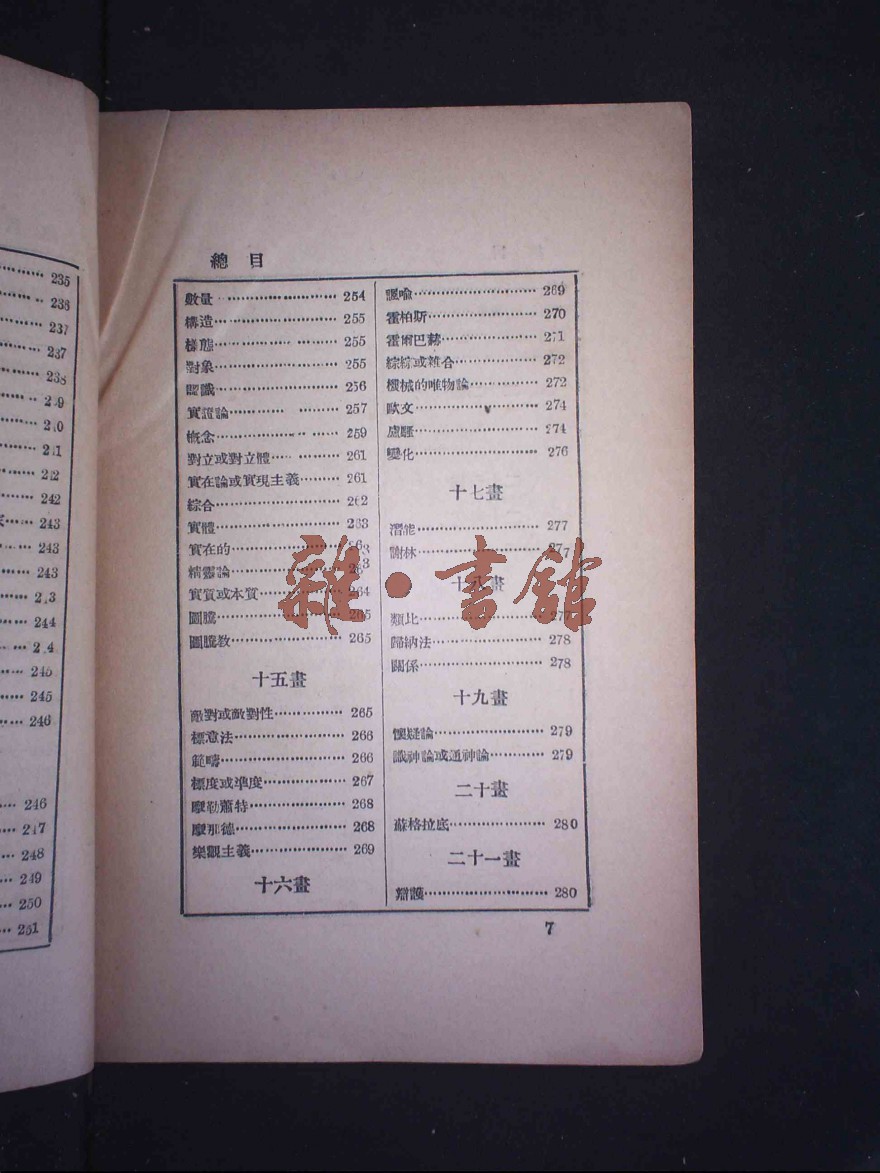 235
236
237
237
238
242
243
243
243
244
245
246
246
247
248
249
250
251
總目
數量 254
構造 255
樣態 255
對象 255
認識 256
實證論 257
概念 259
對立或對立體 261
實在論或實現主義 261
綜合 262
實體 263
實在的
精靈論
實質或本質 264
圖騰 265
圖騰教 265
十五畫
敵對或敵對性 265
標意法 266
範疇 266
標度或準度 267
摩勒蕭特 268
摩那德 268
樂觀主義 269
十六畫
諷喻 269
霍柏斯 270
霍爾巴赫 271
綜綜或雜合 272
機械的唯物論 272
歐文 274
盧騷 274
變化 276
十七畫
潛能 277
謝林 277
十八畫
類比 277
歸納法 278
關係 278
十九畫
懷疑論 279
識神論或通神論 279
二十畫
蘇格拉底 280
二十一畫
辯護 280
7
雜·書館